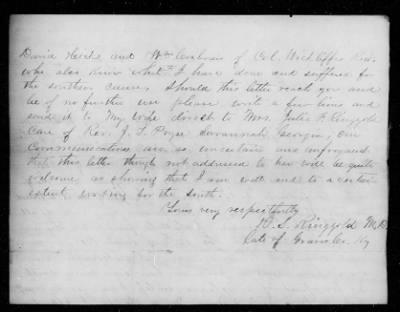 David and Wm of Col. Wickliffes
who also know what I have done and suffered for
the southern cause. Should this letter reach you and
be of no further use please write a few lines and
send it to my wife direct to Mrs. Julia A Ringgold
Care of Rev. J. S. Savannah, Georgia, our
communications are so uncertain and
that this letter though not addressed to her will be quite
welcome as showing that I am well and to a certain
extent working for the south.
Yours very respectfully
S. Ringgold M.D.
Late of Ky